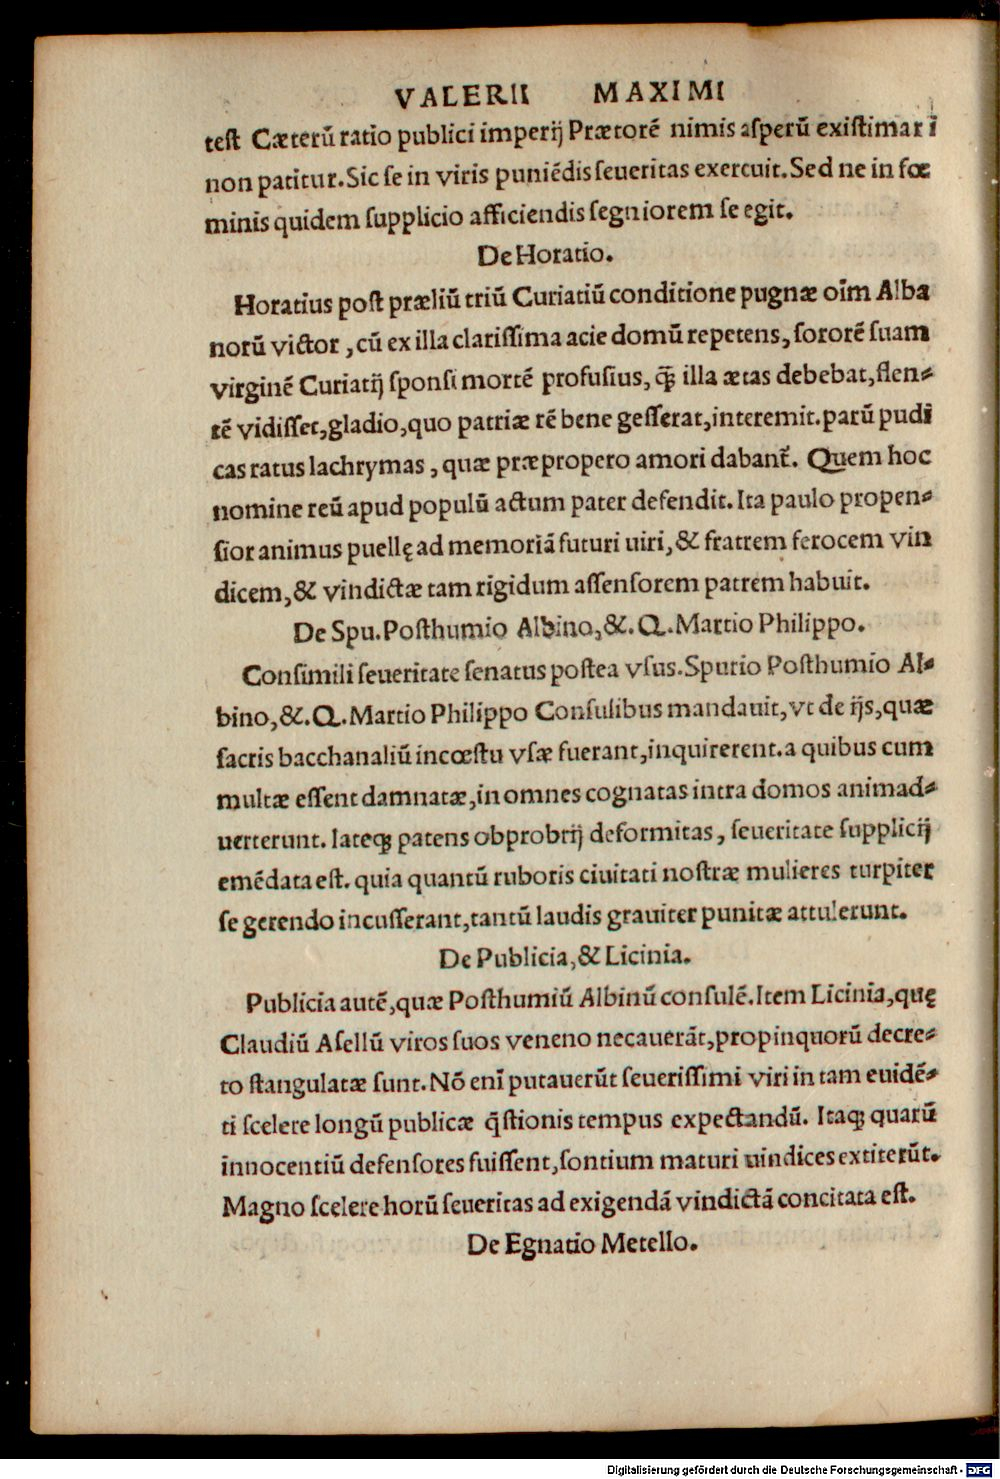 VALERII MAXIMI
test Cæterū ratio publici imperij Prætorē nimis aſperū exiſtimari
non patitur. Sic ſe in viris puniēdis ſeueritas exercuit. Sed ne in fœ
minis quidem ſupplicio afficiendis ſegniorem ſe egit.
De Horatio.
Horatius poſt præliū triū Curiatiū conditione pugnæ oīm Alba
norū victor, cū ex illa clariſſima acie domū repetens, ſororē ſuam
virginē Curiatij ſponſi mortē profuſius, ꝗ̃ illa ætas debebat, flen-
tē vidiſſet, gladio, quo patriæ rē bene geſſerat, interemit. parū pudi
cas ratus lachrymas, quæ præpropero amori dabant̃. Quem hoc
nomine reū apud populū actum pater defendit. Ita paulo propen-
ſior animus puellę ad memoriā futuri uiri, & fratrem ferocem vin
dicem, & vindictæ tam rigidum aſſenſorem patrem habuit.
De Spu. Poſthumio Albino, &. Q. Martio Philippo.
Conſimili ſeueritate ſenatus poſtea vſus. Spurio Poſthumio Al-
bino, &. Q. Martio Philippo Conſulibus mandauit, vt de ijs, quæ
ſacris bacchanaliū incœſtu vſæ fuerant, inquirerent. a quibus cum
multæ eſſent damnatæ, in omnes cognatas intra domos animad-
uerterunt. lateq; patens obprobrij deformitas, ſeueritate ſupplicij
emēdata eſt. quia quantū ruboris ciuitati noſtræ mulieres turpiter
ſe gerendo incuſſerant, tantū laudis grauiter punitæ attulerunt.
De Publicia, & Licinia.
Publicia autē, quæ Poſthumiū Albinū conſulē. Item Licinia, quę
Claudiū Aſellū viros ſuos veneno necauerāt, propinquorū decre-
to ſtangulatæ ſunt. Nō enī putauerūt ſeueriſſimi viri in tam euidē-
ti ſcelere longū publicæ q̄ſtionis tempus expectandū. Itaq; quarū
innocentiū defenſores fuiſſent, ſontium maturi uindices extiterūt.
Magno ſcelere horū ſeueritas ad exigendā vindictā concitata eſt.
De Egnatio Metello.
Digitalisierung gefördert durch die Deutsche Forschungsgemeinschaft - DFG